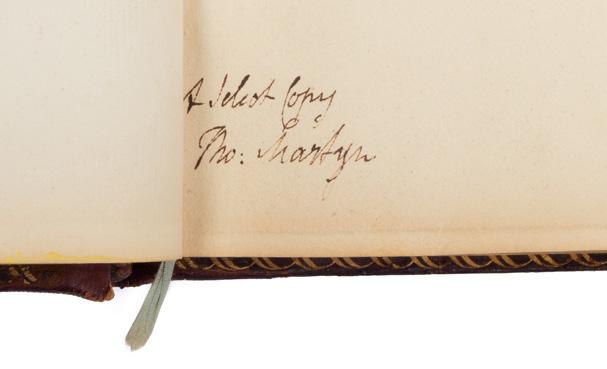 A Select Copy
Tho: Martyn